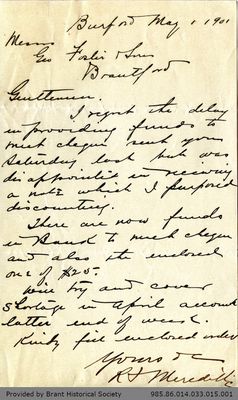 Burford May 1 1901
Messrs
Geo Foster & Sons
Brantford
Gentlemen.
I regret the delay
in providing funds to
meet cheque sent you
Saturday last but was
disappointed in receiving
a note which I purposed
discounting.
There are now funds
in Bank to meet cheque
and also the enclosed
one of $25-
Will try and cover
shortage in April account
latter end of week.
Kindly fill enclosed order
Yours &c
R S Meredith
Provided by Brant Historical Society
985.86.014.033.015.001